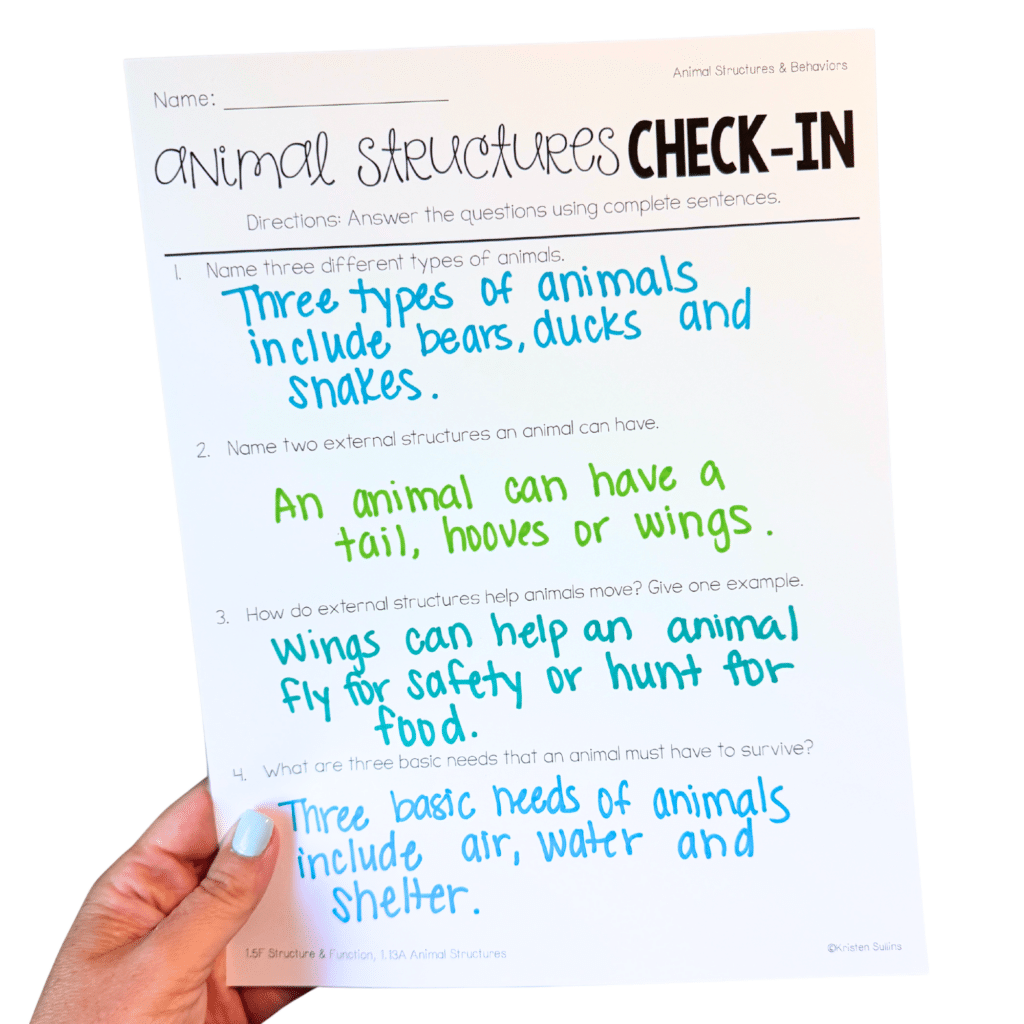 Animal Structures & Behaviors
Name:
Animal Structures CHECK-IN
Directions: Answer the questions using complete sentences.
1. Name three different types of animals.
Three types of animals
include bears, ducks and
snakes.
2. Name two external structures an animal can have.
An animal can have a
tail, hooves or wings.
3. How do external structures help animals move? Give one example.
Wings can help an animal
fly for safety or hunt for
food.
4. What are three basic needs that an animal must have to survive?
Three basic needs of animals
include air, water and
shelter.
1.5F Structure & Function, 1.13A Animal Structures
©Kristen Sullins